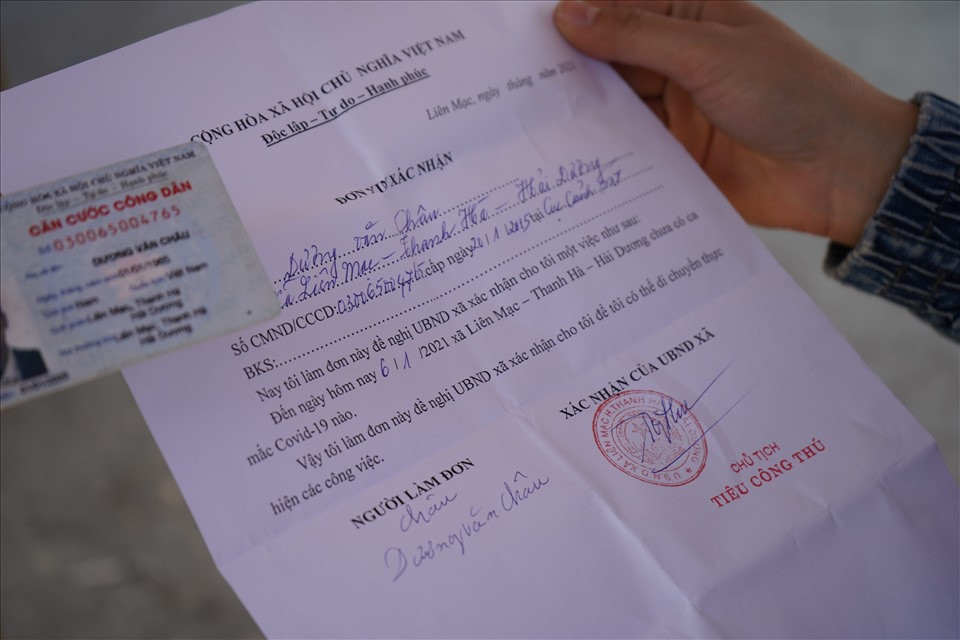 CỘNG HÒA XÃ HỘI CHỦ NGHĨA VIỆT NAM
Độc lập – Tự do – Hạnh phúc
Liên Mạc, ngày tháng năm 2021
ĐƠN XÁC NHẬN
Dương Văn Châu
Liên Mạc – Thanh Hà – Hải Dương
Số CMND/CCCD: 030065004765 cấp ngày 20/11/2015 tại Cục Cảnh sát
BKS:
Nay tôi làm đơn này đề nghị UBND xã xác nhận cho tôi một việc như sau:
Đến ngày hôm nay 6/1/2021 xã Liên Mạc – Thanh Hà – Hải Dương chưa có ca
mắc Covid-19 nào.
Vậy tôi làm đơn này đề nghị UBND xã xác nhận cho tôi để tôi có thể di chuyển thực
hiện các công việc.
NGƯỜI LÀM ĐƠN
Châu
Dương Văn Châu
XÁC NHẬN CỦA UBND XÃ
U.B.N.D XÃ LIÊN MẠC H.THANH HÀ
CHỦ TỊCH
TIÊU CÔNG THÚ
CỘNG HÒA XÃ HỘI CHỦ NGHĨA VIỆT NAM
Độc lập - Tự do - Hạnh phúc
CĂN CƯỚC CÔNG DÂN
Số 030065004765
DƯƠNG VĂN CHÂU
Nam Việt Nam
Liên Mạc, Thanh Hà
Hải Dương
Liên Mạc, Thanh Hà
Hải Dương